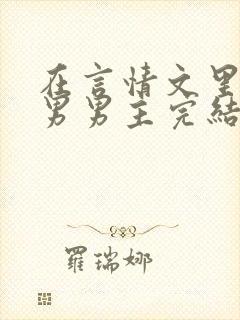 在言情文里
男男主完結
羅瑞娜